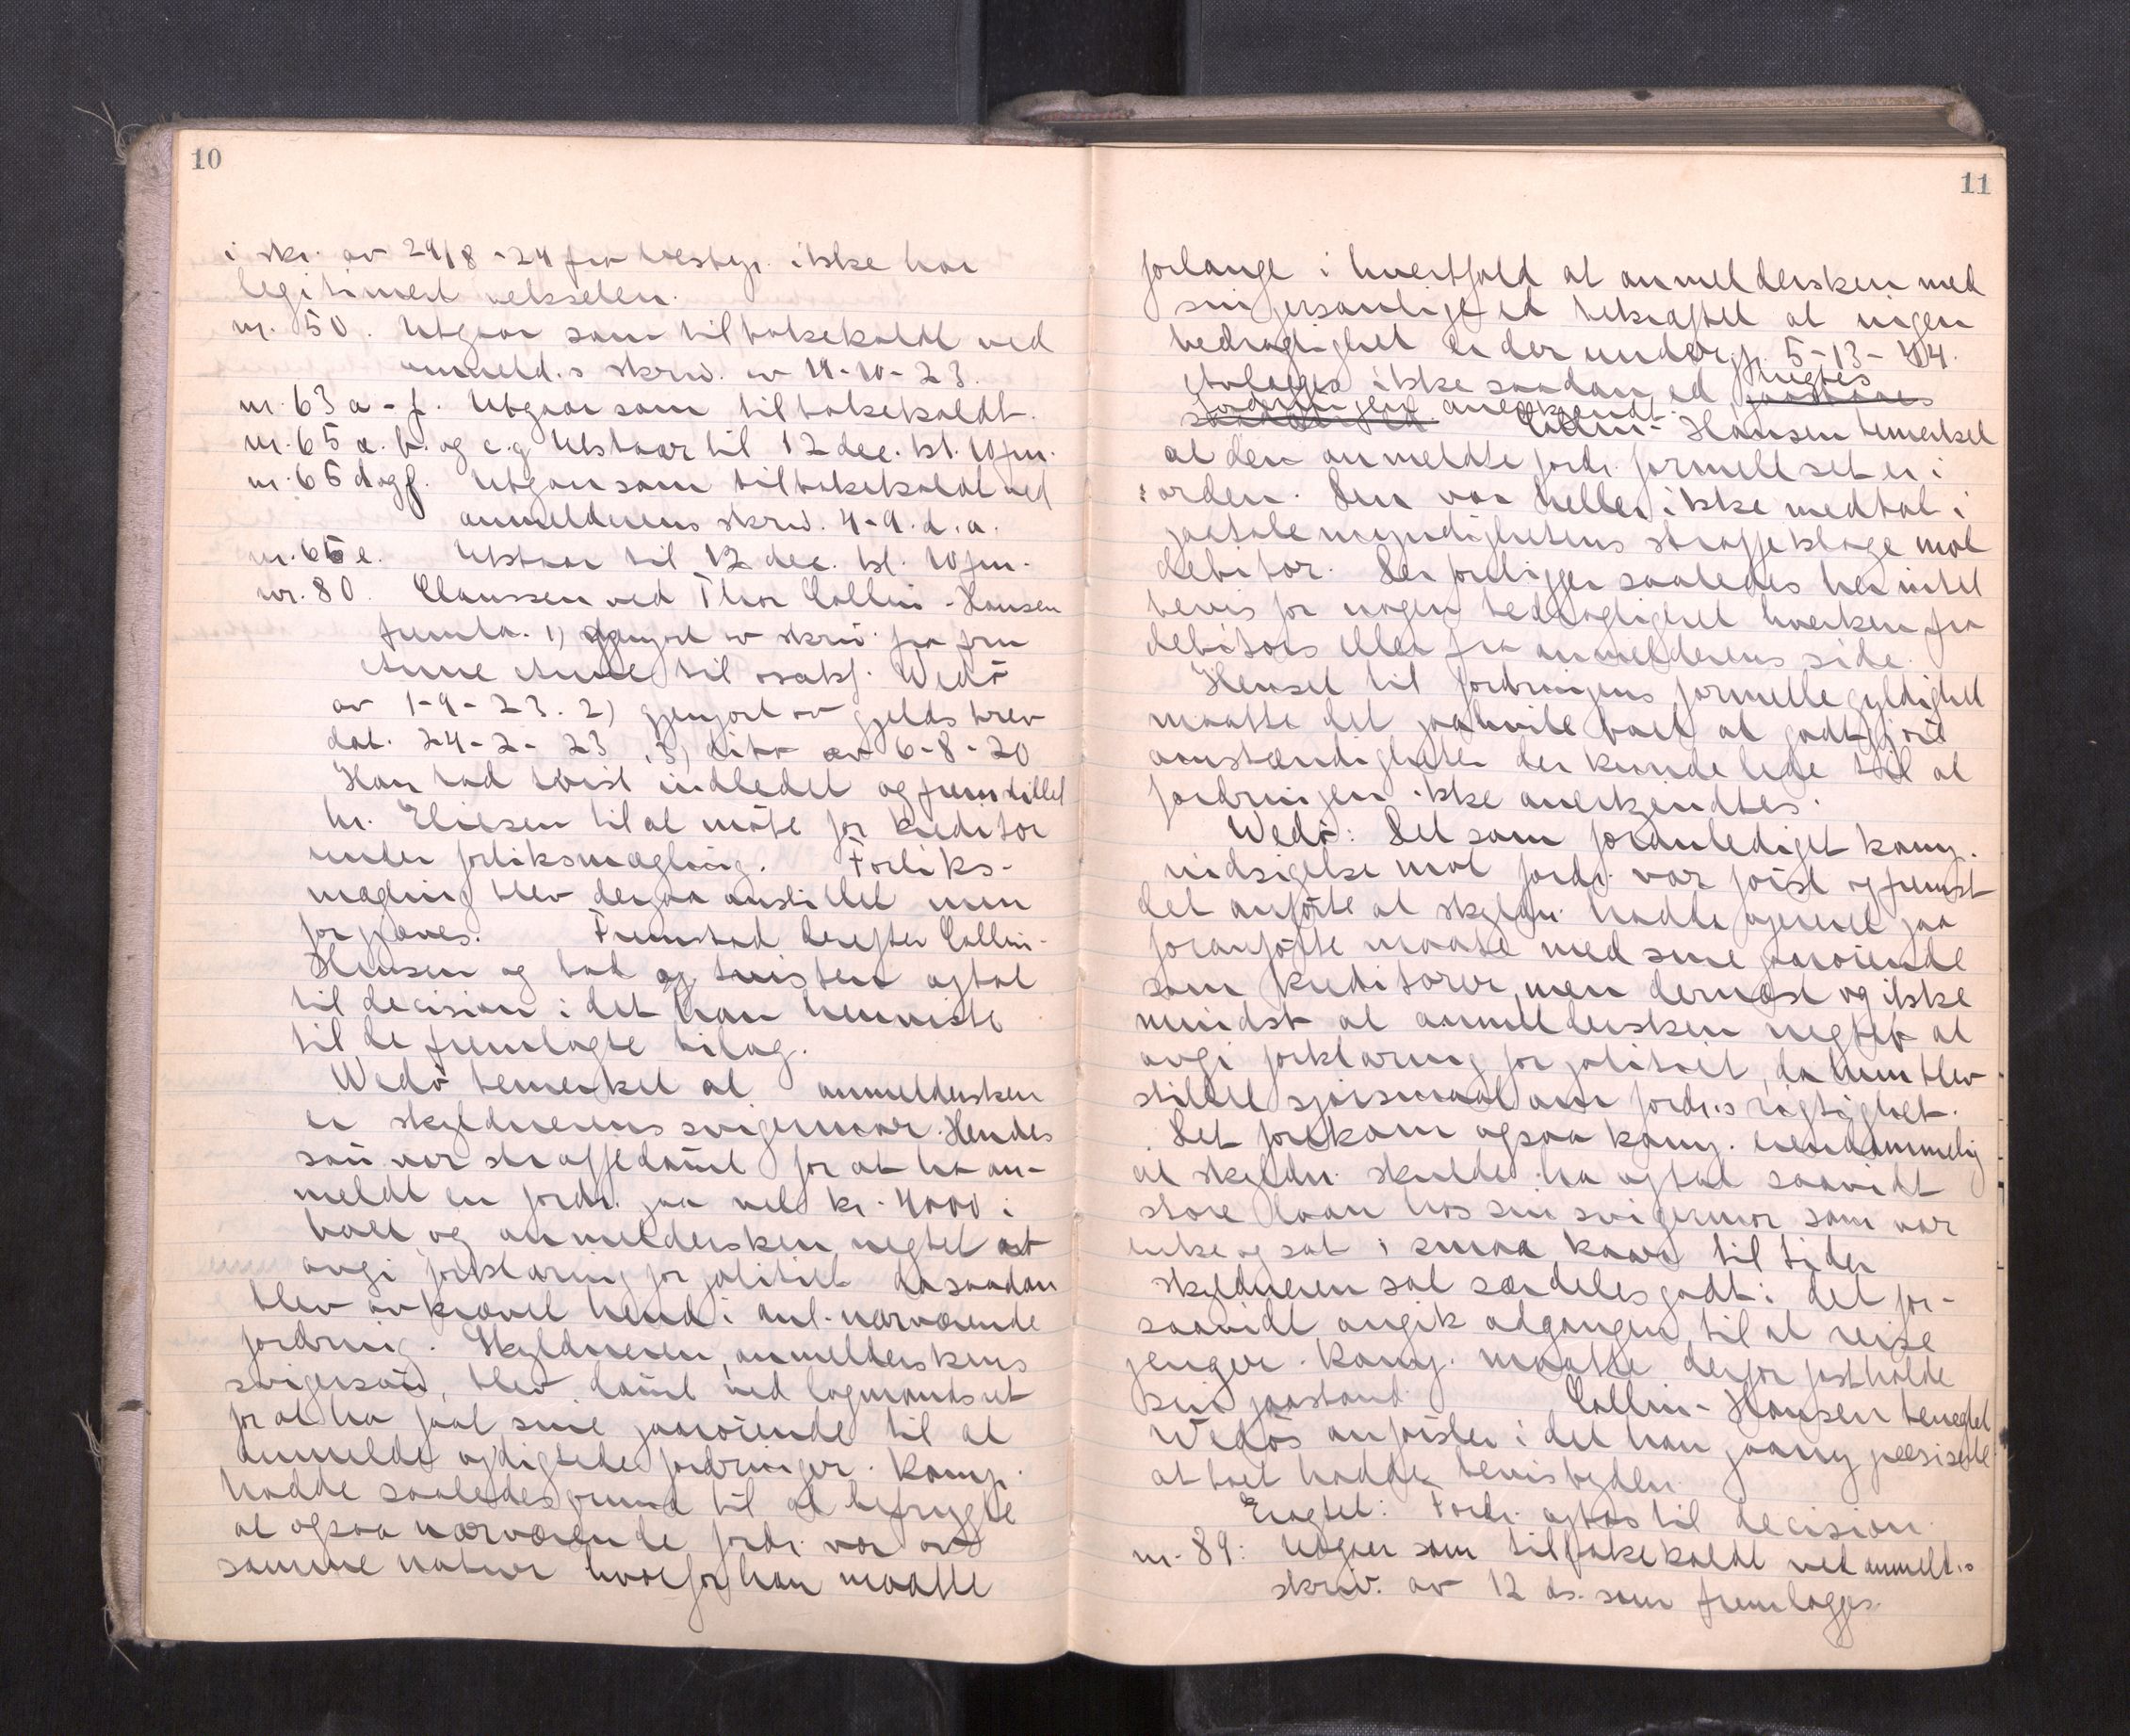 10
i skr. av 29/8-24 fra bestyr. ikke har
legitimert vekselen.
nr. 50. Utgaar som tilbakekaldt ved
anmeld.s skriv. av 11-10-23.
nr. 63 a-f. Utgaar som tilbakekaldt.
nr. 65 a. b. og c. g Utstaar til 12 dec. kl. 10 fm.
nr. 65 d og f. Utgaar som tilbakekaldt ved
anmelderens skriv. 4-9. d.a.
nr. 65 e. Utstaar til 12 dec. kl. 10 fm.
nr. 80. Claussen ved Thor Collin-Hansen
fremla. 1) gjenpart av skriv. fra fru
til osakf. Wedø
av 1-9-23. 2) gjenpart av gjeldsbrev
dat. 24-2-23, 3) ditto av 6-8-20
Han bad tvist indledet og fremstillet
hr. Eliesen til at møte for kreditor
under forliksmægling. Forliks-
mægling blev derpaa anstillet men
forgjæves. Fremstod derefter Collin-
Hansen og bad tvisten optat
til decision i det han henviste
til de fremlagte bilag.
Wedø bemerket at anmeldersken
er skyldnerens svigermor. Hendes
søn var straffedømt for at ha an-
meldt en fordr. paa vel kr. 4000 i
boet og anmeldersken negtet at
avgi forklaring for politiet da saadan
blev avkrævet hende i anl. nærværende
fordring. Skyldneren, anmelderskens
svigersøn, blev dømt ved lagmandsret
for at ha faat sine paarørende til at
anmelde opdigtede fordringer. Komp.
hadde saaledes grund til at befrygte
at ogsaa nærværende fordr. var av
samme natur hvorfor han maatte
11
forlange i hvertfald at anmeldersken med
sin personlige ed bekræftet at ingen
bedragelighet er der under jfr. 5-13-44.
Avlægges ikke saadan ed negtes
fordringen anerkjendt. Collin-Hansen bemerket
at den anmeldte fordr. formelt set er i
orden. Den var heller ikke medtat i
paatalemyndighetens straffeklage mot
debitor. Der foreligger saaledes her intet
bevis for nogen bedragelighet hverken fra
debitors eller fra anmelderens side.
Henset til fordringens formelle gyldighet
maatte det paahvile boet at godtgjøre
omstændigheter der kunde lede til at
fordringen ikke anerkjendtes.
Wedø: Det som foranlediget komp.
indsigelse mot fordr. var først og fremst
det anførte at skyldn. hadde operert paa
foranførte maate med sine paarørende
som kreditorer, men dernæst og ikke
mindst at anmeldersken negtet at
avgi forklaring for politiet, da hun blev
stillet spørsmaal om fordr.s rigtighet.
Det forekom ogsaa komp. eiendommelig
at skyldn. skulde ha optat saavidt
store laan hos sin svigermor som var
enke og sat i smaa kaar til tider
skyldneren sat særdeles godt i det for-
saavidt angik adgangen til at reise
penger. Komp. maatte derfor fastholde
sin paastand. Collin-Hansen benegtet
Wedøs anførsler i det han paany præsiserte
at boet hadde bevisbyrden.
Eragtet: Fordr. optas til decision.
nr. 89: Utgaar som tilbakekaldt ved anmeld.s
skriv. av 12 ds. som fremlægges.